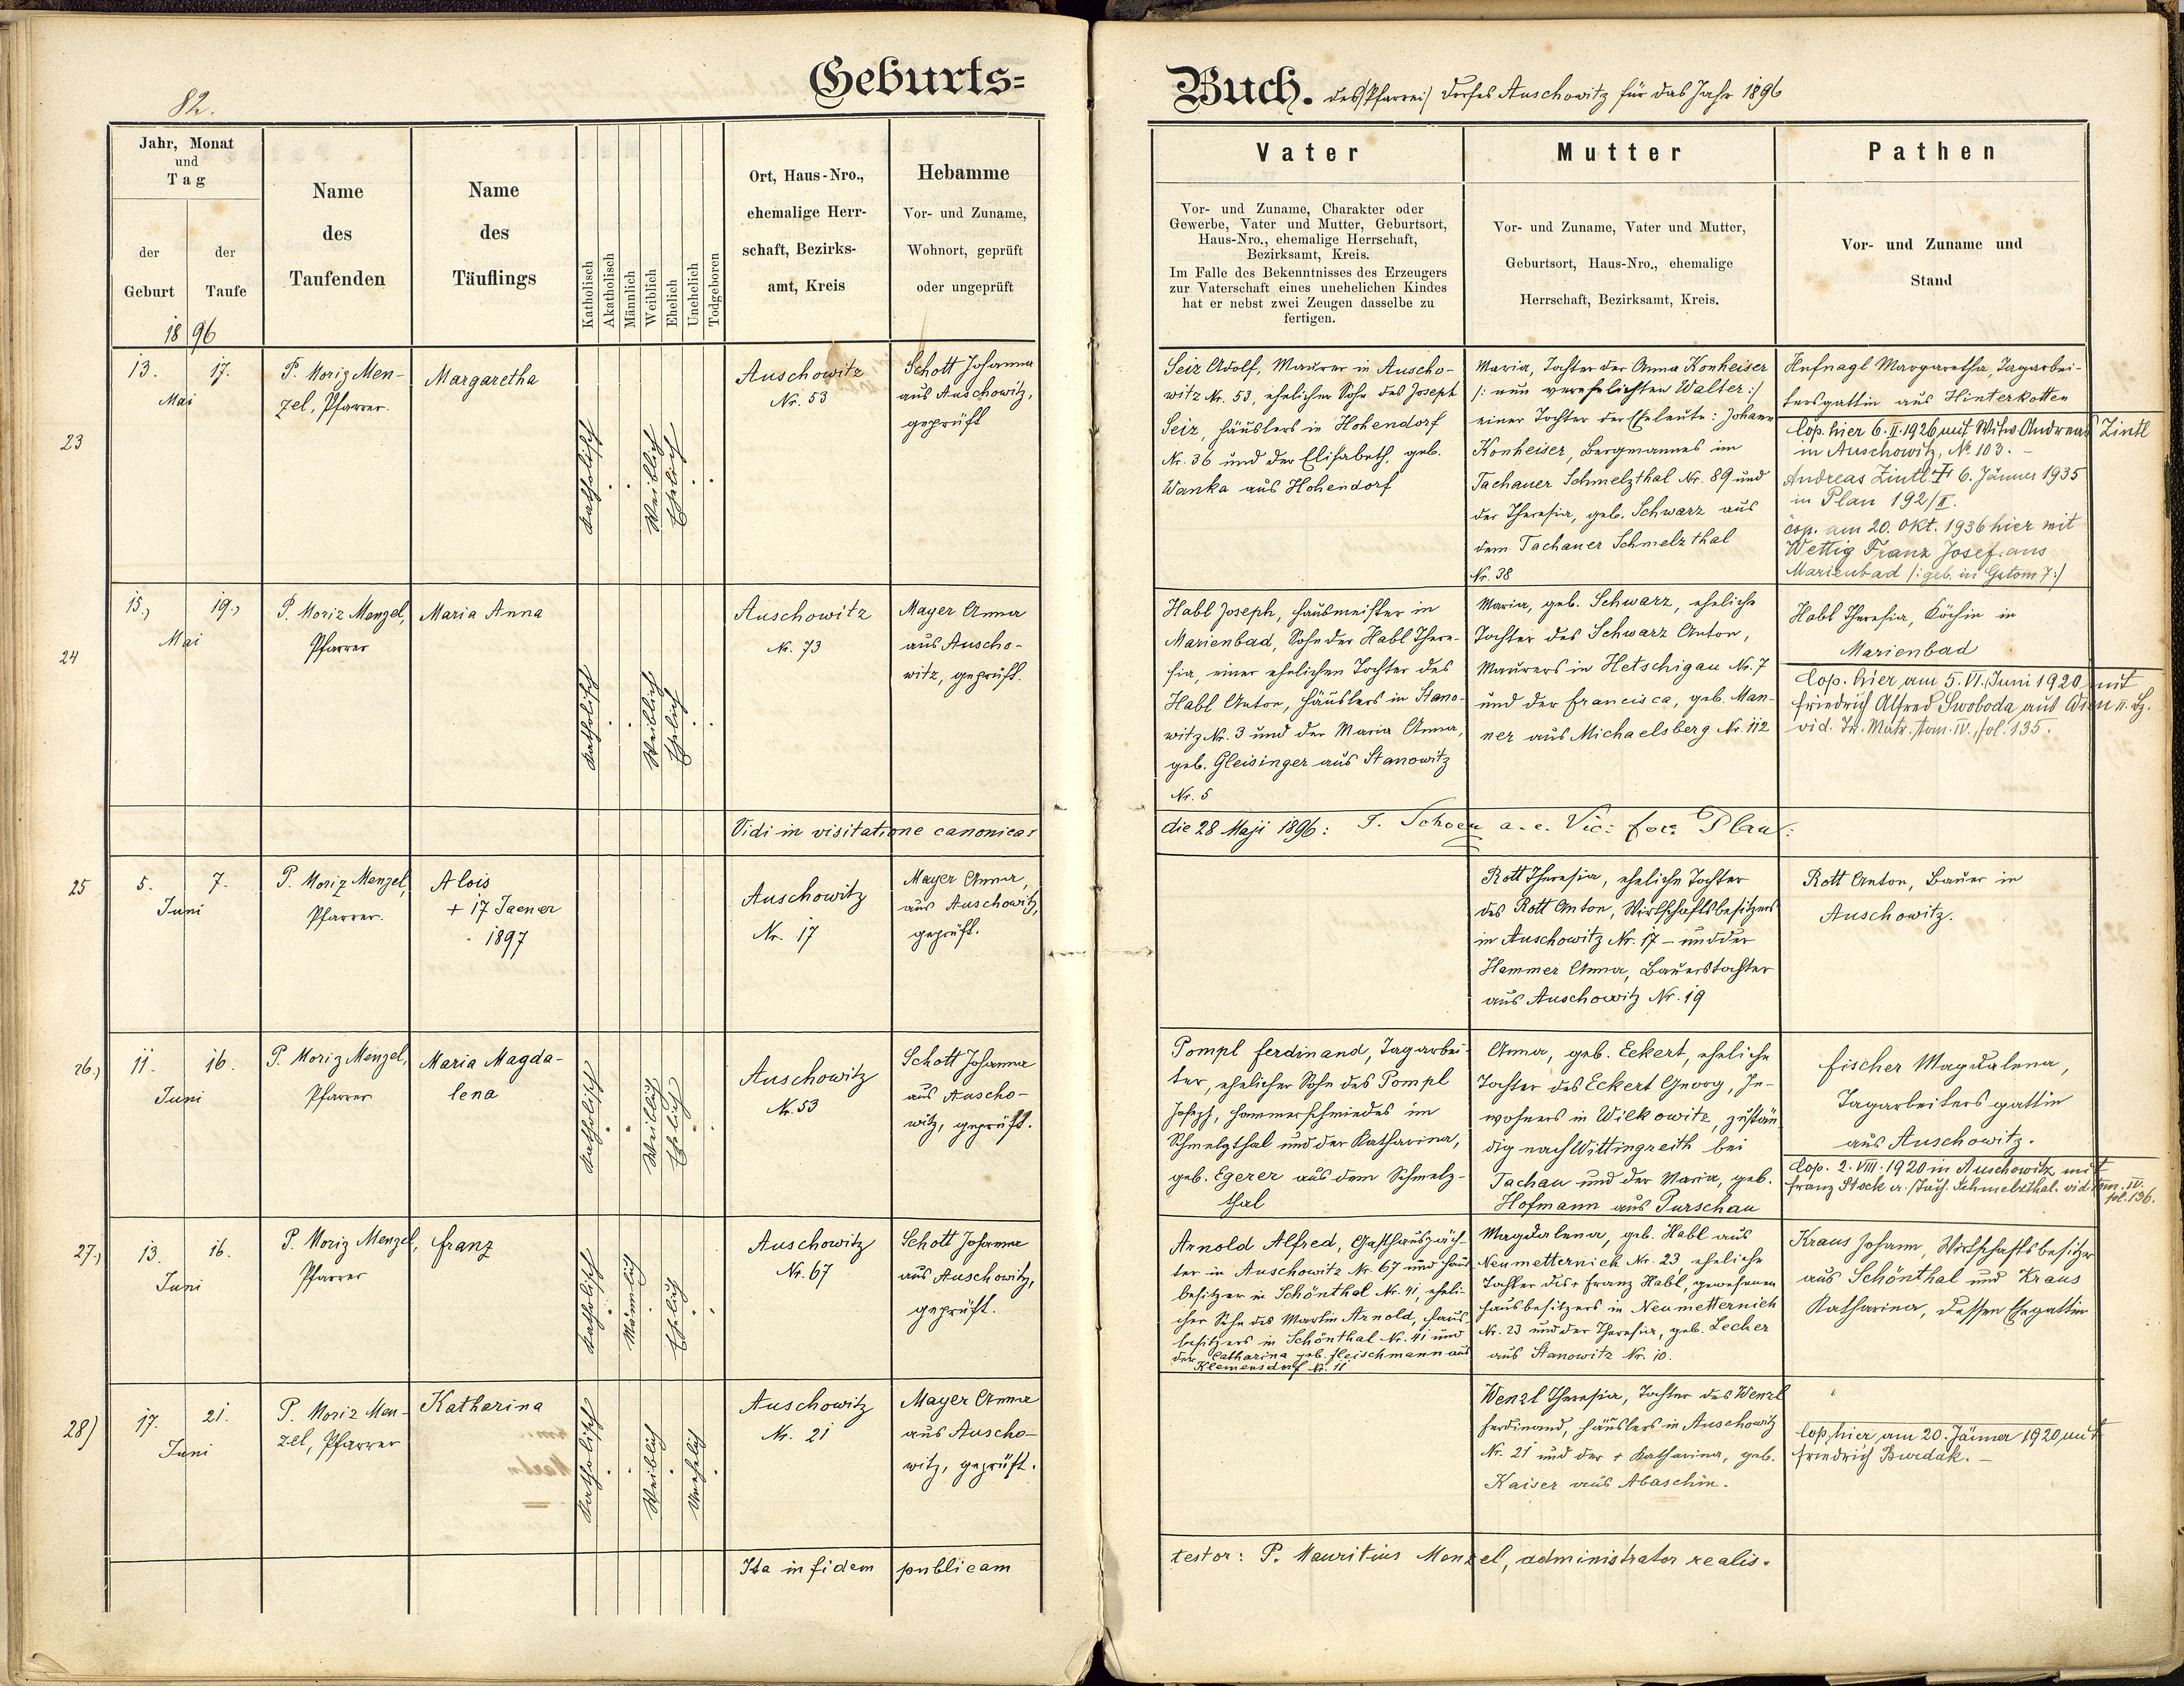 82.
Geburts=
Buch. des (Pfarrei) Dorfes Auschowitz für das Jahr 1896
Jahr, Monat
und
Tag
der
Geburt
der
Taufe
1896
Name
des
Taufenden
Name
des
Täuflings
Katholisch
Akatholisch
Männlich
Weiblich
Ehelich
Unehelich
Todgeboren
Ort, Haus-Nro.,
ehemalige Herr-
schaft, Bezirks-
amt, Kreis
Hebamme
Vor- und Zuname,
Wohnort, geprüft
oder ungeprüft
Vater
Vor- und Zuname, Charakter oder
Gewerbe, Vater und Mutter, Geburtsort,
Haus-Nro., ehemalige Herrschaft,
Bezirksamt, Kreis.
Im Falle des Bekenntnisses des Erzeugers
zur Vaterschaft eines unehelichen Kindes
hat er nebst zwei Zeugen dasselbe zu
fertigen.
Mutter
Vor- und Zuname, Vater und Mutter,
Geburtsort, Haus-Nro., ehemalige
Herrschaft, Bezirksamt, Kreis.
Pathen
Vor- und Zuname und
Stand
23
13. 17.
Mai
P. Moriz Men-
zel, Pfarrer.
Margaretha
Katholisch
Weiblich
Ehelich
Auschowitz
Nr. 53
Schott Johanna
aus Auschowitz,
geprüft
Seiz Adolf, Maurer in Auscho-
witz Nr. 53, ehelicher Sohn des Joseph
Seiz, Häuslers in Hohendorf
Nr. 36 und der Elisabeth, geb.
Wanka aus Hohendorf
Maria, Tochter der Anna Konheiser
/: nun verehelichten Walter :/
einer Tochter der Eheleute: Johann
Konheiser, Bergmannes im
Tachauer Schmelzthal Nr. 89 und
der Theresia, geb. Schwarz aus
dem Tachauer Schmelzthal
Nr. 38
Hufnagl Margaretha, Tagarbei-
tersgattin aus Hinterkotten
Cop. hier 6. II. 1926 mit Witw. Andreas Zintl
in Auschowitz, No 103. -
Andreas Zintl + 6. Jänner 1935
in Plan 192/II.
cop. am 20. Okt. 1936 hier mit
Wettig Franz Josef aus
Marienbad /: geb. in :/
24
15., 19.,
Mai
P. Moriz Menzel,
Pfarrer
Maria Anna
Katholisch
Weiblich
Ehelich
Auschowitz
Nr. 73
Mayer Anna
aus Auscho-
witz, geprüft.
Habl Joseph, Hausmeister in
Marienbad, Sohn der Habl There-
sia, einer ehelichen Tochter des
Habl Anton, Häuslers in Stano-
witz Nr. 3 und der Maria Anna,
geb. Gleisinger aus Stanowitz
Nr. 5
Maria, geb. Schwarz, eheliche
Tochter des Schwarz Anton,
Maurers in Hetschigau Nr. 7
und der Francisca, geb. Man-
ner aus Michaelsberg Nr. 112
Habl Theresia, Köchin in
Marienbad
Cop. hier, am 5. VI. Juni 1920 mit
Friedrich Alfred Swoboda, aus Wien
vid. Tr. Matr. tom. IV., fol. 135.
Vidi in visitatione canonica:
die 28 Maji 1896: Schoen a. e. Vic: for: Plan:
25
5. 7.
Juni
P. Moriz Menzel,
Pfarrer.
Alois
+ 17 Jaener
1897
Auschowitz
Nr. 17
Mayer Anna,
aus Auschowitz,
geprüft.
Rott Theresia, eheliche Tochter
des Rott Anton, Wirthschaftsbesitzers
in Auschowitz Nr. 17 - und der
Hammer Anna, Bauerstochter
aus Auschowitz Nr. 19
Rott Anton, Bauer in
Auschowitz.
26.,
11. 16.
Juni
P. Moriz Menzel,
Pfarrer
Maria Magda-
lena
Katholisch
Weiblich
Ehelich
Auschowitz
Nr. 53
Schott Johanna
aus Auscho-
witz, geprüft.
Pompl Ferdinand, Tagarbei-
ter, ehelicher Sohn des Pompl
Joseph, Hammerschmiedes im
Schmelzthal und der Katharina,
geb. Egerer aus dem Schmelz-
thal
Anna, geb. Eckert, eheliche
Tochter des Eckert Georg, In-
wohners in Wilkowitz, zustän-
dig nach Wittingreith bei
Tachau und der Maria, geb.
Hofmann aus Purschau
Fischer Magdalena,
Tagarbeitersgattin
aus Auschowitz.
Cop. 2. VIII. 1920 in Auschowitz mit
Franz Stock a. Tach. Schmelzthal. vid. tom. IV.
fol. 136.
27.,
13. 16.
Juni
P. Moriz Menzel,
Pfarrer
Franz
Katholisch
Männlich
Ehelich
Auschowitz
Nr. 67
Schott Johanna
aus Auschowitz,
geprüft.
Arnold Alfred, Gasthauspäch-
ter in Auschowitz Nr. 67 und Haus-
besitzer in Schönthal Nr. 41, eheli-
cher Sohn des Martin Arnold, Haus-
besitzers in Schönthal Nr. 41 und
der Catharina geb. Fleischmann aus
Klemensdorf Nr. 11
Magdalena, geb. Habl aus
Neumetternich Nr. 23, eheliche
Tochter des + Franz Habl, gewesenen
Hausbesitzers in Neumetternich
Nr. 23 und der Theresia, geb. Lecher
aus Stanowitz Nr. 10.
Kraus Johann, Wirthschaftsbesitzer
aus Schönthal und Kraus
Katharina, dessen Ehegattin
28)
17. 21.
Juni
P. Moriz Men-
zel, Pfarrer
Katharina
Katholisch
Weiblich
Unehelich
Auschowitz
Nr. 21
Mayer Anna
aus Auscho-
witz, geprüft.
Wenzl Theresia, Tochter des Wenzl
Ferdinand, Häuslers in Auschowitz
Nr. 21 und der + Katharina, geb.
Kaiser aus Abaschin.
Cop. hier, am 20. Jänner 1920, mit
Friedrich Burdak. -
Ita in fidem publicam
testor: P. Mauritius Menzel, administrator realis.